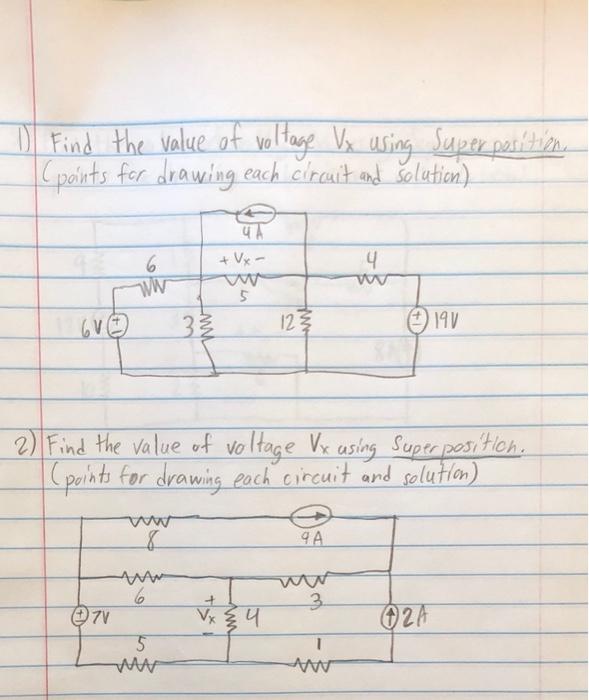 1) Find the value of voltage Vx using Superposition.
(points for drawing each circuit and solution)
4A
6 + Vx - 4
5
6V + - 3 12 + - 19V
2) Find the value of voltage Vx using Superposition.
(points for drawing each circuit and solution)
8 9A
6 3
+ 7V + Vx - 4 2A
5 1